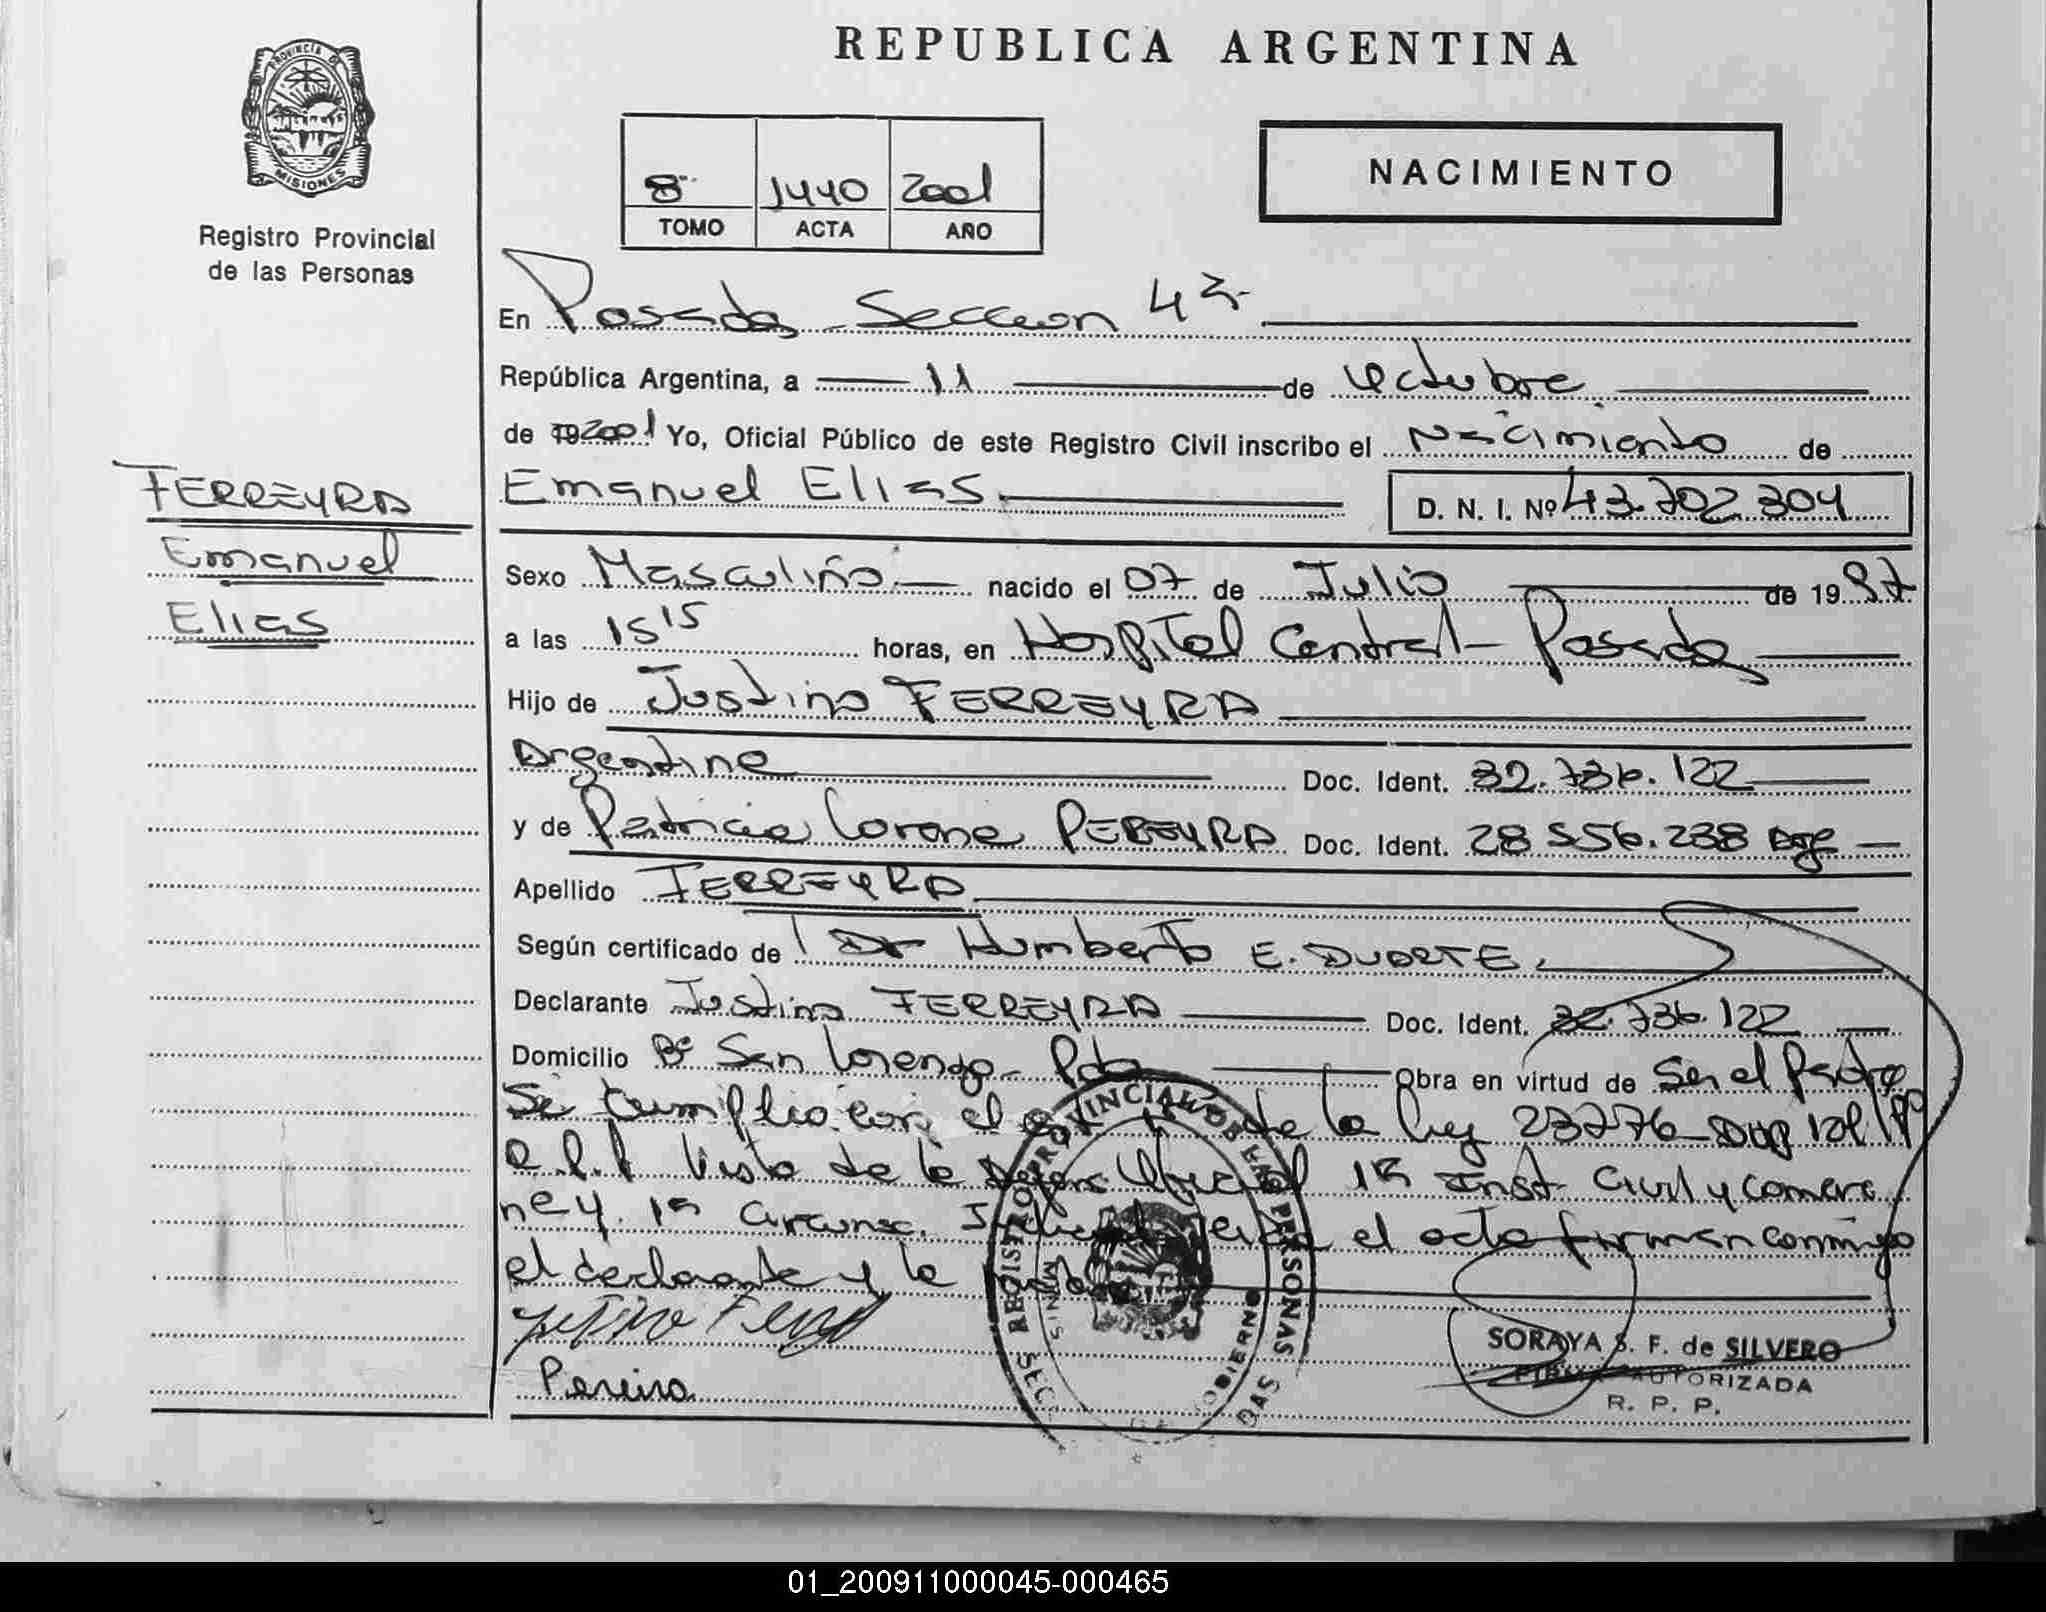 REPUBLICA ARGENTINA
PROVINCIA DE
MISIONES
Registro Provincial
de las Personas
8º 1440 2001
TOMO ACTA AÑO
NACIMIENTO
FERREYRA
Emanuel
Elias
En Posadas Seccion 4ª
República Argentina, a 11 de Octubre
de 19 2001 Yo, Oficial Público de este Registro Civil inscribo el Nacimiento de
Emanuel Elias. D. N. I. Nº 43.702.304
Sexo Masculino nacido el 07 de Julio de 1997
a las 15 15 horas, en Hospital Central - Posadas
Hijo de Justino FERREYRA
Argentino Doc. Ident. 32.736.122
y de Patricia Lorena PEREYRA Doc. Ident. 28.556.238 Arg
Apellido FERREYRA
Según certificado de Dr Humberto E. DUARTE.
Declarante Justino FERREYRA Doc. Ident. 32.736.122
Domicilio Bº San Lorenzo - Pdas Obra en virtud de Ser el Padre
Se cumplio con el de la ley 23776
Visto de la Oficial 1ª Inst Civil y Comerc
Nº 4. 1ª Circunsc. el acta firman conmigo
el declarante y la
Pereira
REGISTRO PROVINCIAL DE LAS PERSONAS
GOBIERNO
SORAYA S. F. de SILVERO
FIRMA AUTORIZADA
R. P. P.
01_200911000045-000465